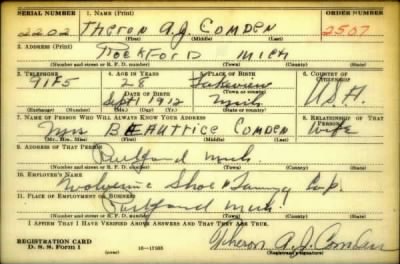 SERIAL NUMBER 1. NAME (Print) ORDER NUMBER
2202 Theron A.J. Comden 2507
(First) (Middle) (Last)
2. ADDRESS (Print)
Rockford Mich
(Number and street or R. F. D. number) (Town) (County) (State)
3. TELEPHONE 4. AGE IN YEARS 5. PLACE OF BIRTH 6. COUNTRY OF CITIZENSHIP
9165 28 Lakeview U.S.A.
DATE OF BIRTH (Town or county)
Sept 1 1912 Mich
(Exchange) (Number) (Mo.) (Day) (Yr.) (State or country)
7. NAME OF PERSON WHO WILL ALWAYS KNOW YOUR ADDRESS 8. RELATIONSHIP OF THAT PERSON
Mrs BEAuttrice Comden Wife
(Mr., Mrs., Miss) (First) (Middle) (Last)
9. ADDRESS OF THAT PERSON
Mich
(Number and street or R. F. D. number) (Town) (County) (State)
10. EMPLOYER'S NAME
Wolverine Shoe & Tanning Corp.
11. PLACE OF EMPLOYMENT OR BUSINESS
Mich
(Number and street or R. F. D. number) (Town) (County) (State)
I AFFIRM THAT I HAVE VERIFIED ABOVE ANSWERS AND THAT THEY ARE TRUE.
REGISTRATION CARD
D. S. S. Form 1 16—17105 Theron A. J. Comden
(Registrant's signature)